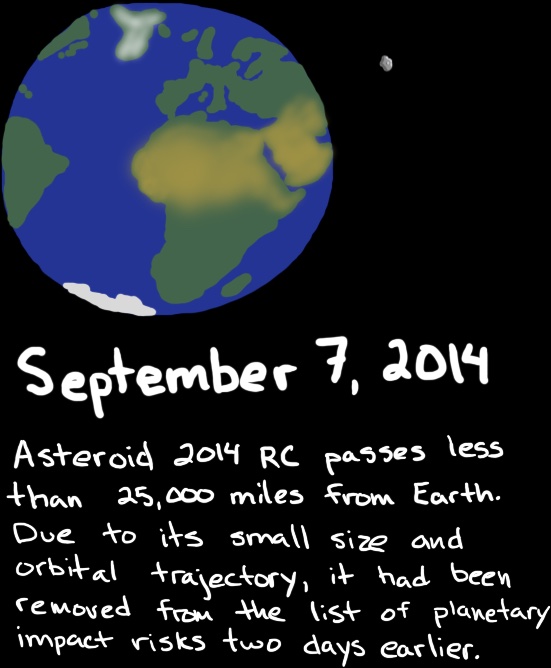 September 7, 2014
Asteroid 2014 RC passes less
than 25,000 miles from Earth.
Due to its small size and
orbital trajectory, it had been
removed from the list of planetary
impact risks two days earlier.